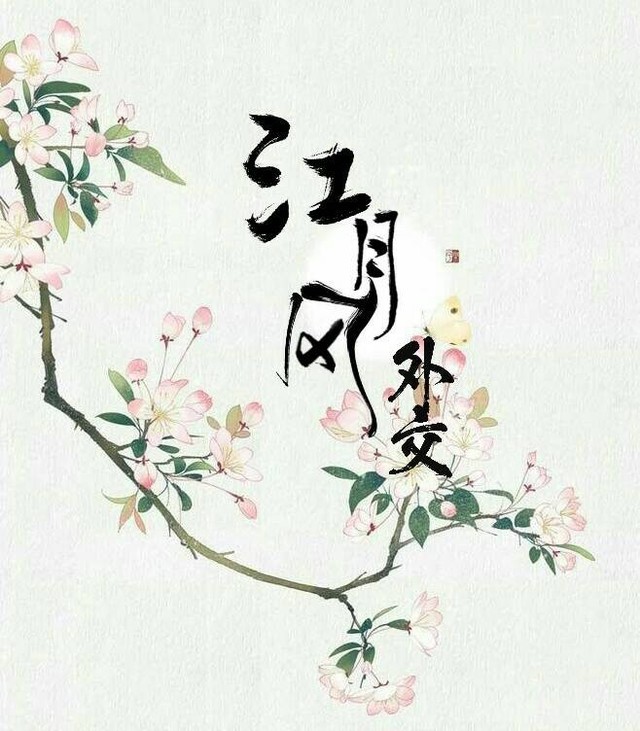 江月风
外交